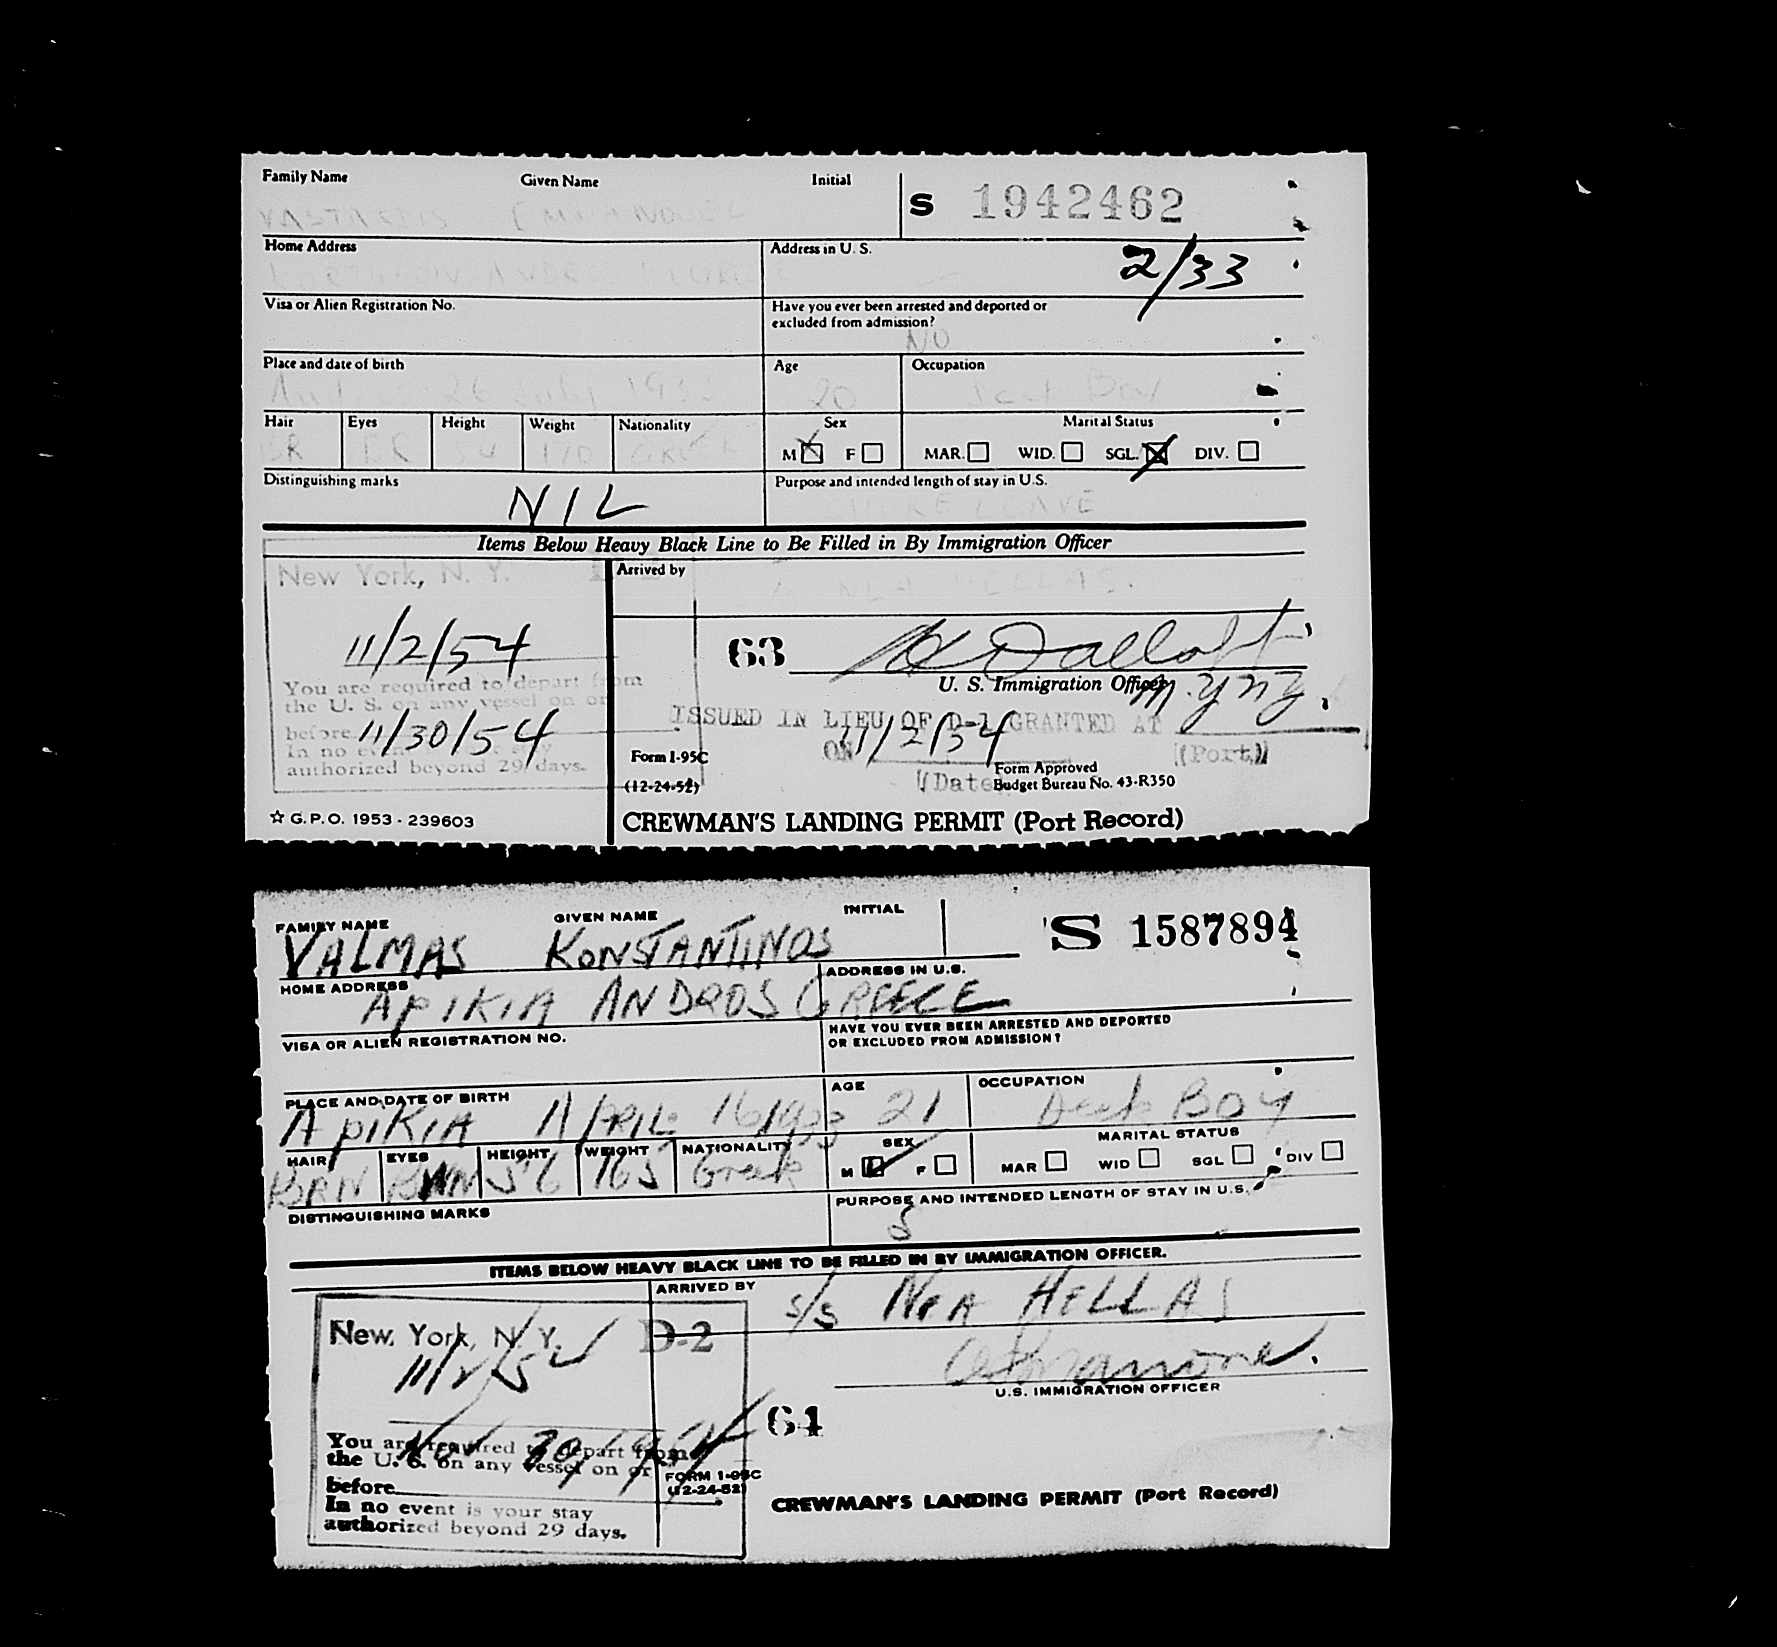 Family Name Given Name Initial
S 1942462
Home Address Address in U. S.
2/33
Visa or Alien Registration No. Have you ever been arrested and deported or
excluded from admission?
NO
Place and date of birth Age Occupation
26 July 20 Boy
Hair Eyes Height Weight Nationality Sex Marital Status
BR M F MAR. WID. SGL. DIV.
Distinguishing marks Purpose and intended length of stay in U.S.
NIL LEAVE
Items Below Heavy Black Line to Be Filled in By Immigration Officer
New York, N. Y. Arrived by
HELLAS.
11/2/54
63
You are required to depart from
the U. S. on any vessel on or
before 11/30/54
In no event is your stay
authorized beyond 29 days.
U. S. Immigration Officer
ISSUED IN LIEU OF D-1 GRANTED AT
ON 11/2/54 (Port)
(Date
Form I-95C
(12-24-52)
Form Approved
Budget Bureau No. 43-R350
☆ G.P.O. 1953 - 239603
CREWMAN'S LANDING PERMIT (Port Record)
FAMILY NAME GIVEN NAME INITIAL
VALMAS KONSTANTINOS
S 1587894
HOME ADDRESS ADDRESS IN U.S.
APIKIA ANDROS GREECE
VISA OR ALIEN REGISTRATION NO. HAVE YOU EVER BEEN ARRESTED AND DEPORTED
OR EXCLUDED FROM ADMISSION?
PLACE AND DATE OF BIRTH AGE OCCUPATION
APIKIA APRIL 16/1933 21 Deck BOY
HAIR EYES HEIGHT WEIGHT NATIONALITY SEX MARITAL STATUS
BRN BRN 56 165 Greek M F MAR WID SGL DIV
DISTINGUISHING MARKS PURPOSE AND INTENDED LENGTH OF STAY IN U.S.
S
ITEMS BELOW HEAVY BLACK LINE TO BE FILLED IN BY IMMIGRATION OFFICER.
ARRIVED BY
S/S NEA HELLAS
New York, N. Y. D-2
11/2/54
U.S. IMMIGRATION OFFICER
64
Nov 30/1954
You are required to depart from
the U. S. on any vessel on or
before
In no event is your stay
authorized beyond 29 days.
FORM I-95C
(12-24-52)
CREWMAN'S LANDING PERMIT (Port Record)